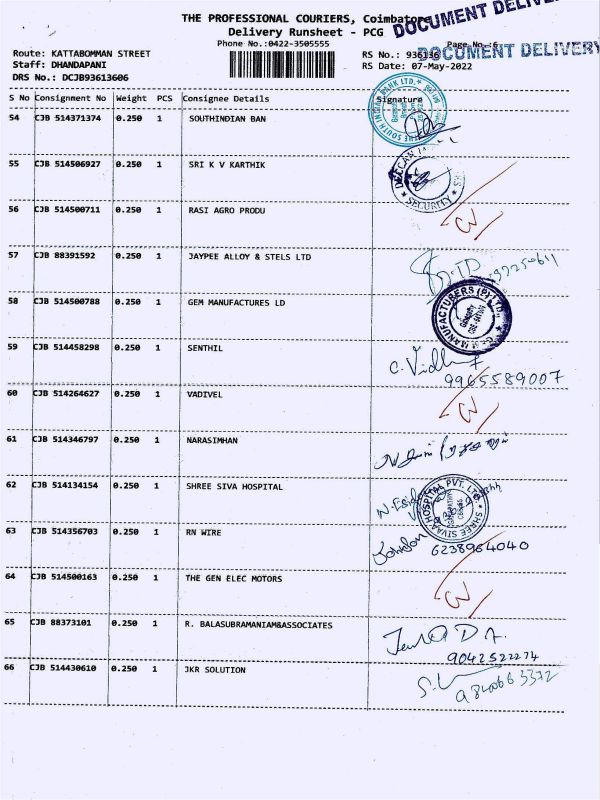 THE PROFESSIONAL COURIERS, Coimbatore
DOCUMENT DELIVERY
Delivery Runsheet - PCG
Phone No.:0422-3505555
Page No.:6
Route: KATTABOMMAN STREET
RS No.: 936136
DOCUMENT DELIVERY
Staff: DHANDAPANI
RS Date: 07-May-2022
DRS No.: DCJB93613606
S No Consignment No Weight PCS Consignee Details Signature
54 CJB 514371374 0.250 1 SOUTHINDIAN BAN
THE SOUTH INDIAN BANK LTD.
55 CJB 514506927 0.250 1 SRI K V KARTHIK
DECCAN
SECURITY
56 CJB 514500711 0.250 1 RASI AGRO PRODU
57 CJB 88391592 0.250 1 JAYPEE ALLOY & STELS LTD
58 CJB 514500788 0.250 1 GEM MANUFACTURES LD
MANUFACTURERS (P) LTD.
59 CJB 514458298 0.250 1 SENTHIL
9965589007
60 CJB 514264627 0.250 1 VADIVEL
61 CJB 514346797 0.250 1 NARASIMHAN
62 CJB 514134154 0.250 1 SHREE SIVA HOSPITAL
SHREE SIVAA HOSPITAL PVT. LTD.
63 CJB 514356703 0.250 1 RN WIRE
6238964040
64 CJB 514500163 0.250 1 THE GEN ELEC MOTORS
65 CJB 88373101 0.250 1 R. BALASUBRAMANIAM&ASSOCIATES
9042522274
66 CJB 514430610 0.250 1 JKR SOLUTION
9840663372